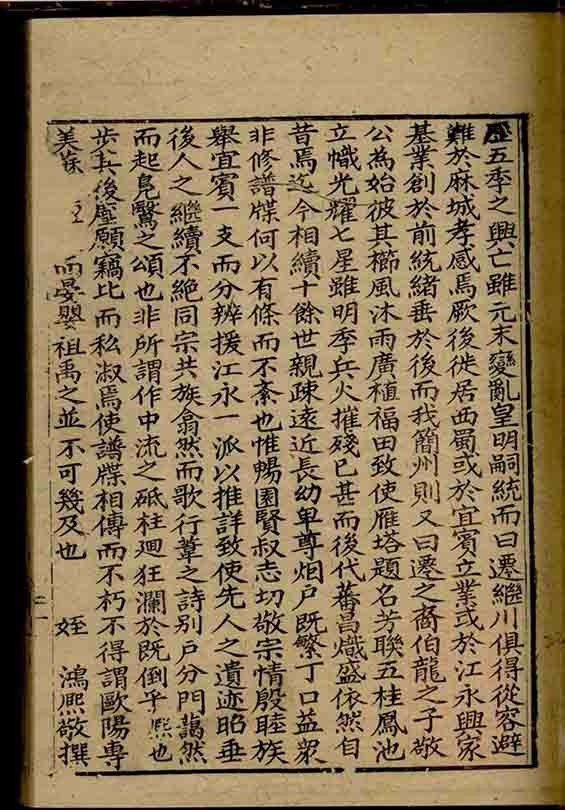 歷五季之興亡雖元末變亂皇明嗣統而曰遷繼川俱得從容避
難於麻城孝感焉厥後徙居西蜀或於宜賓立業或於江永興家
基業創於前統緒垂於後而我簡州則又曰遷之裔伯龍之子敬
公為始彼其櫛風沐雨廣植福田致使雁塔題名芳聯五桂鳳池
立幟光耀七星雖明季兵火摧殘已甚而後代蕃昌熾盛依然自
昔焉迄今相續十餘世親疎遠近長幼卑尊烟户既繁丁口益衆
非修譜牒何以有條而不紊也惟暢園賢叔志切敬宗情殷睦族
舉宜賓一支而分辨援江永一派以推詳致使先人之遺迹昭垂
後人之繼續不絕同宗共族翕然而歌行葦之詩別户分門藹然
而起鳧鷖之頌也非所謂作中流之砥柱迴狂瀾於既倒乎熙也
步其後塵願竊比而私淑焉使譜牒相傳而不朽不得謂歐陽專
美 而晏嬰祖禹之並不可幾及也 姪 鴻熙敬撰